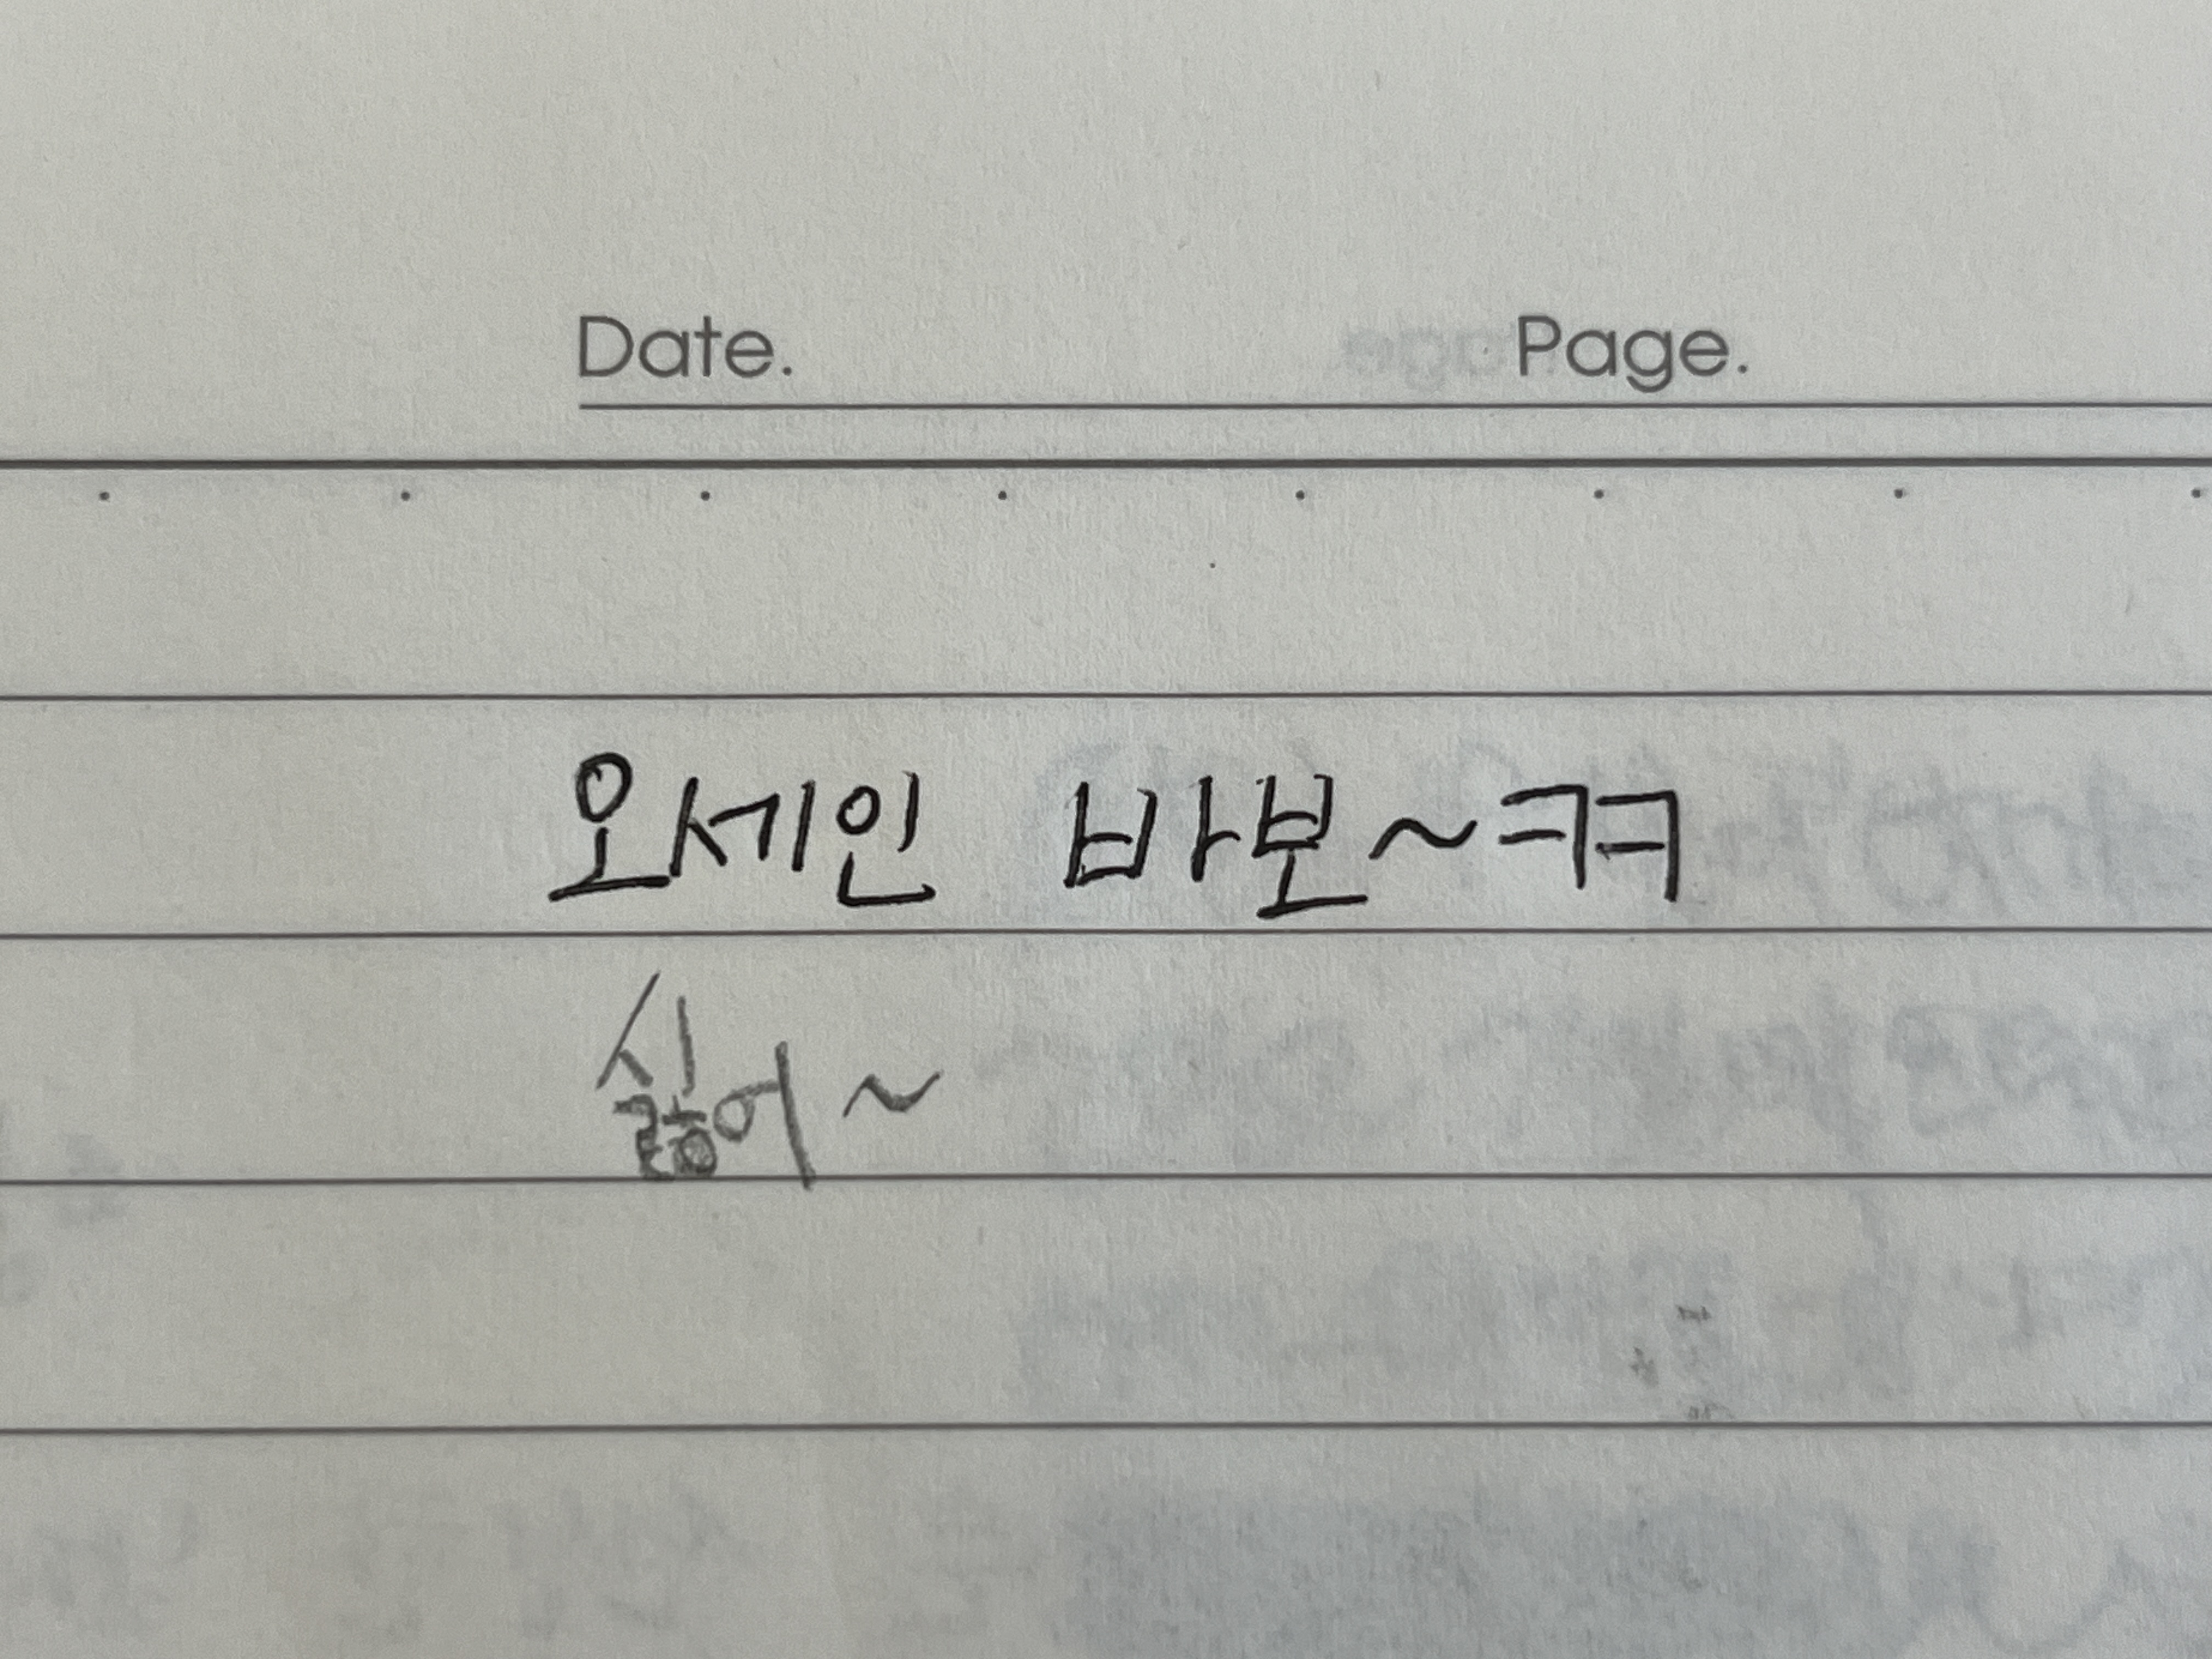 Date. Page.
오세인 바보~ㅋㅋ
싫어~